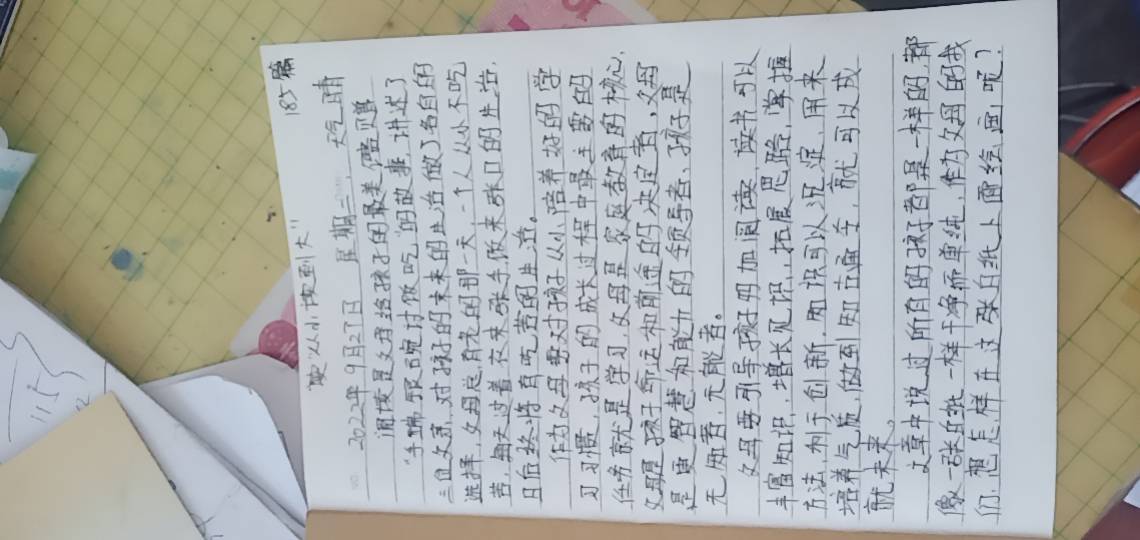 185篇
读"从小读到大"
2022年9月27日 星期二 天气晴
阅读是父母给孩子的最美馈赠
"手端银碗讨饭吃"的故事,讲述了
三位父亲,对孩子的未来的生活做了各自的
选择,父母总有老的那一天,一个人从小不吃
苦,每天过着衣来张手饭来张口的生活,
日后终将有吃苦的生活。
作为父母要对孩子从小培养好的学
习习惯,孩子的成长过程中最主要的
任务就是学习,父母是家庭教育的核心,
父母是孩子命运和前途的决定者,父母
是更智慧和能力的领导者、孩子是
无知者,无能者。
父母要引导孩子增加阅读,读书可以
丰富知识,增长见识,拓展思路,掌握
方法,利于创新,知识可以沉淀,用来
培养气质,做到知立通学,就可以成
就未来。
文章中说过所有的孩子都是一样的,都
像一张白纸一样干净而单纯,作为父母的我
们,想怎样在这张白纸上面绘画呢?